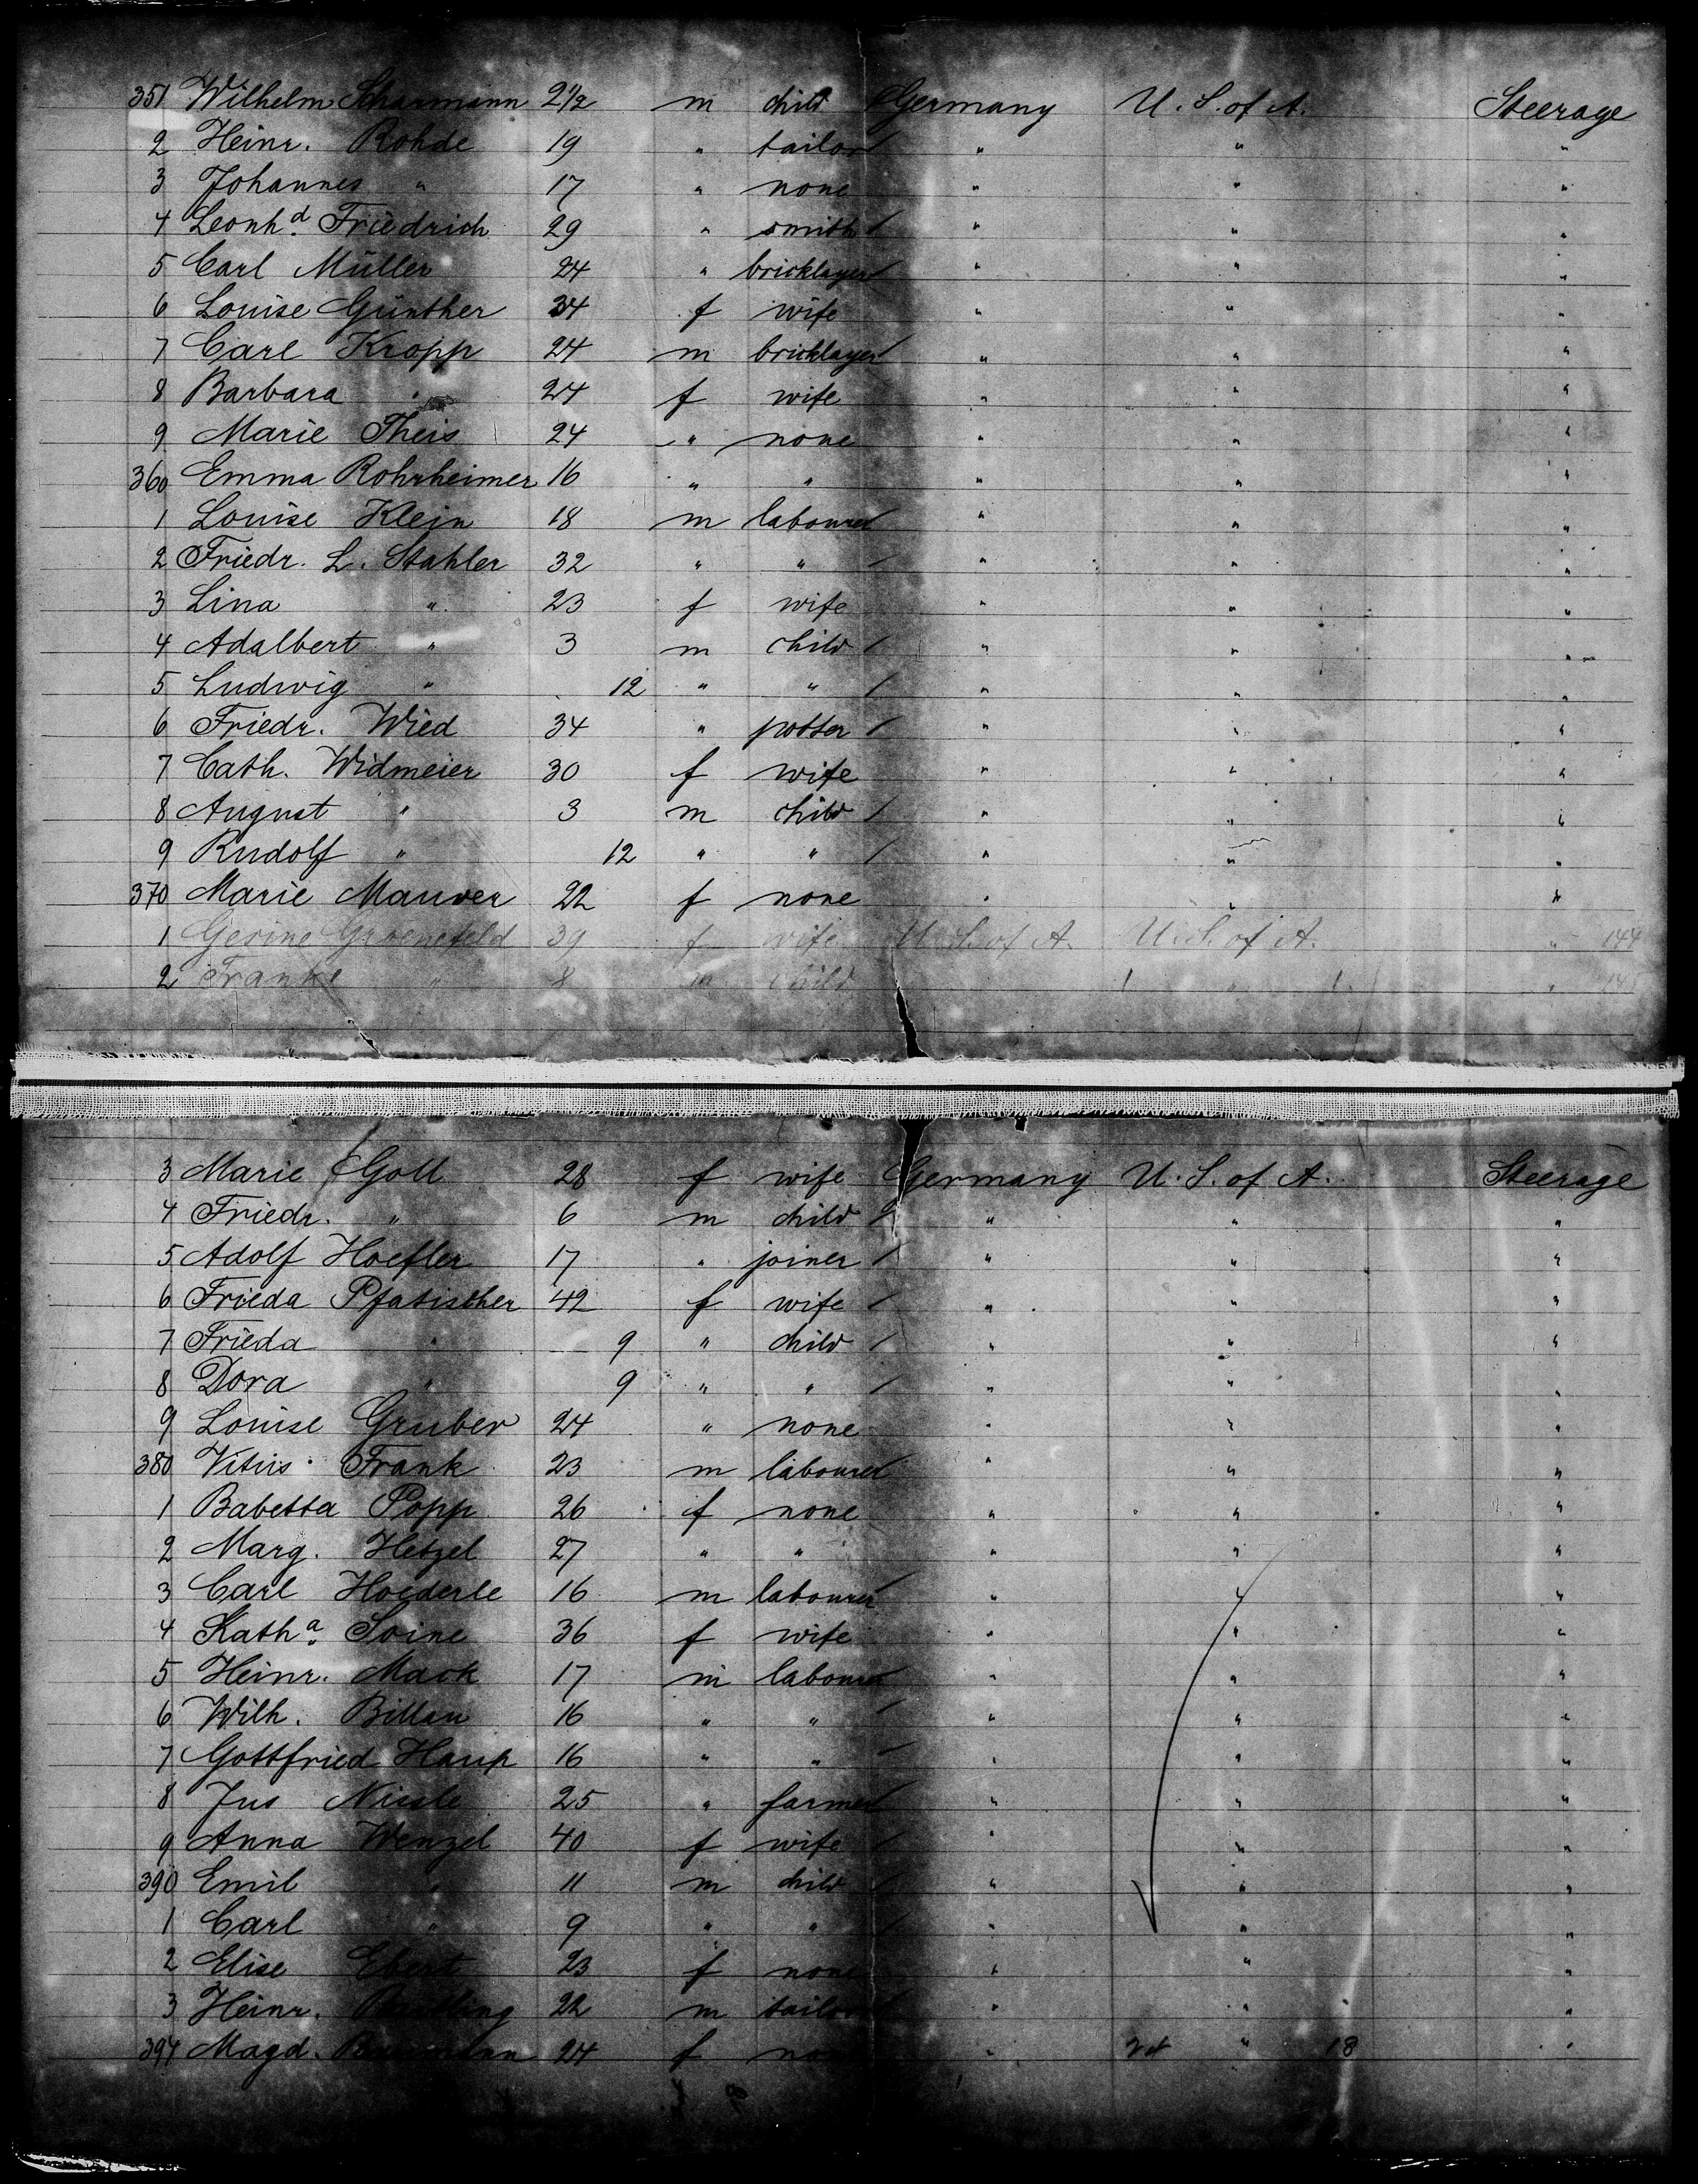 351 Wilhelm Scharmann 2 1/2 m child Germany U. S. of A. Steerage
2 Heinr. Rohde 19 " tailor " " "
3 Johannes " 17 " none " " "
4 Leonhd. Friedrich 29 " smith " " "
5 Carl Müller 24 " bricklayer " " "
6 Louise Günther 34 f wife " " "
7 Carl Kropp 24 m bricklayer " " "
8 Barbara " 24 f wife " " "
9 Marie Theis 24 " none " " "
360 Emma Rohrheimer 16 " " " " "
1 Louise Klein 18 m labourer " " "
2 Friedr. L. Stahler 32 " " " " "
3 Lina " 23 f wife " " "
4 Adalbert " 3 m child " " "
5 Ludwig " 12 " " " " "
6 Friedr. Wied 34 " potter " " "
7 Cath. Widmeier 30 f wife " " "
8 August " 3 m child " " "
9 Rudolf " 12 " " " " "
370 Marie Maurer 22 f none " " "
1 Gesine Groenefeld 39 f wife U. S. of A. U. S. of A. " 144
2 Franke " 8 m child " "
3 Marie Goll 28 f wife Germany U. S. of A. Steerage
4 Friedr. " 6 m child " " "
5 Adolf Hoefler 17 " joiner " " "
6 Frieda Pfatischer 42 f wife " " "
7 Frieda " 9 " child " " "
8 Dora " 9 " " " " "
9 Louise Gruber 24 " none " " "
380 Vitus Frank 23 m labourer " " "
1 Babetta Popp 26 f none " " "
2 Marg. Hetzel 27 " " " " "
3 Carl Hoederle 16 m labourer " " "
4 Katha. Soine 36 f wife " " "
5 Heinr. Mack 17 m labourer " " "
6 Wilh. Billau 16 " " " " "
7 Gottfried Haup 16 " " " " "
8 Jus Nissle 25 " farmer " " "
9 Anna Wenzel 40 f wife " " "
390 Emil " 11 m child " " "
1 Carl " 9 " " " " "
2 Elise Ebert 23 f none " " "
3 Heinr. 22 m tailor " " "
394 Magd. 24 f none " " 18 "